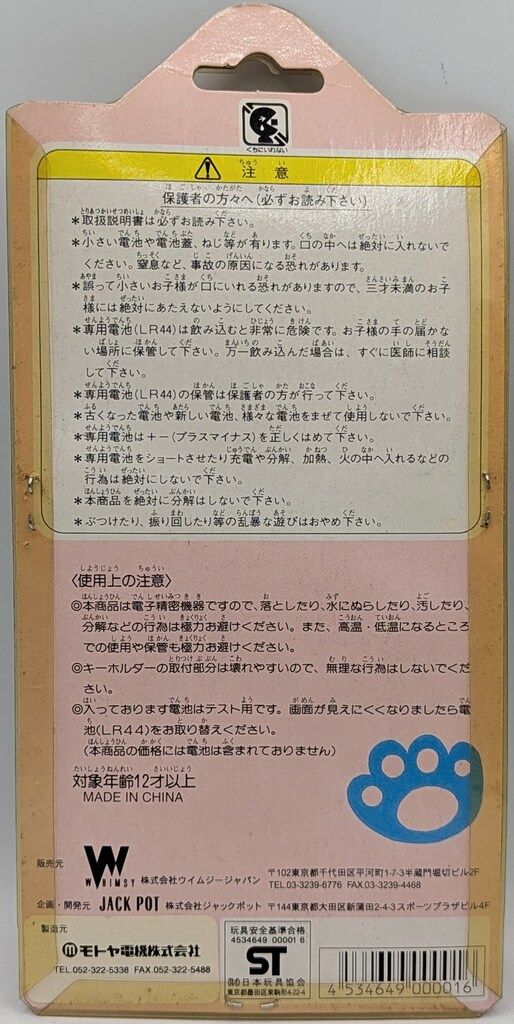 くちにいれない
注意
保護者の方々へ(必ずお読み下さい)
*取扱説明書は必ずお読み下さい。
*小さい電池や電池蓋、ねじ等が有ります。口の中へは絶対に入れないで
ください。窒息など、事故の原因になる恐れがあります。
*誤って小さいお子様が口にいれる恐れがありますので、三才未満のお子
様には絶対にあたえないようにしてください。
*専用電池(LR44)は飲み込むと非常に危険です。お子様の手の届かな
い場所に保管して下さい。万一飲み込んだ場合は、すぐに医師に相談
して下さい。
*専用電池(LR44)の保管は保護者の方が行って下さい。
*古くなった電池や新しい電池、様々な電池をまぜて使用しないで下さい。
*専用電池は+-(プラスマイナス)を正しくはめて下さい。
*専用電池をショートさせたり充電や分解、加熱、火の中へ入れるなどの
行為は絶対にしないで下さい。
*本商品を絶対に分解はしないで下さい。
*ぶつけたり、振り回したり等の乱暴な遊びはおやめ下さい。
〈使用上の注意〉
◎本商品は電子精密機器ですので、落としたり、水にぬらしたり、汚したり、
分解などの行為は極力お避けください。また、高温・低温になるところ
での使用や保管も極力お避けください。
◎キーホルダーの取付部分は壊れやすいので、無理な行為はしないでくだ
さい。
◎入っております電池はテスト用です。画面が見えにくくなりましたら電
池(LR44)をお取り替えください。
(本商品の価格には電池は含まれておりません)
対象年齢12才以上
MADE IN CHINA
販売元 WHIMSY 株式会社ウイムジージャパン 〒102東京都千代田区平河町1-7-3半蔵門堀切ビル2F
TEL.03-3239-6776 FAX.03-3239-4468
企画・開発元 JACK POT 株式会社ジャックポット 〒144東京都大田区新蒲田2-4-3スポーツプラザビル4F
製造元
モトヤ電機株式会社
TEL.052-322-5338 FAX.052-322-5488
玩具安全基準合格
4534649 00001 6
ST
(社)日本玩具協会
東京都墨田区東駒形4-22-4
4 534649 000016